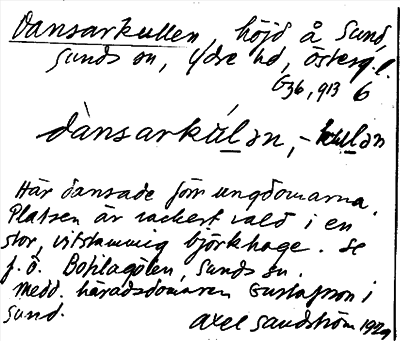 Dansarkullen, höjd å Sund,
Sunds sn, Ydre hd, Österg.l.
G36, 913 6
dànsarkúlən, -kulən
Här dansade förr ungdomarna.
Platsen är vackert vald i en
stor, vitstammig björkhage. Se
f.ö. Boplagölen, Sunds sn.
Medd. häradsdomaren Gustafson i
Sund.
Axel Sandström 1929